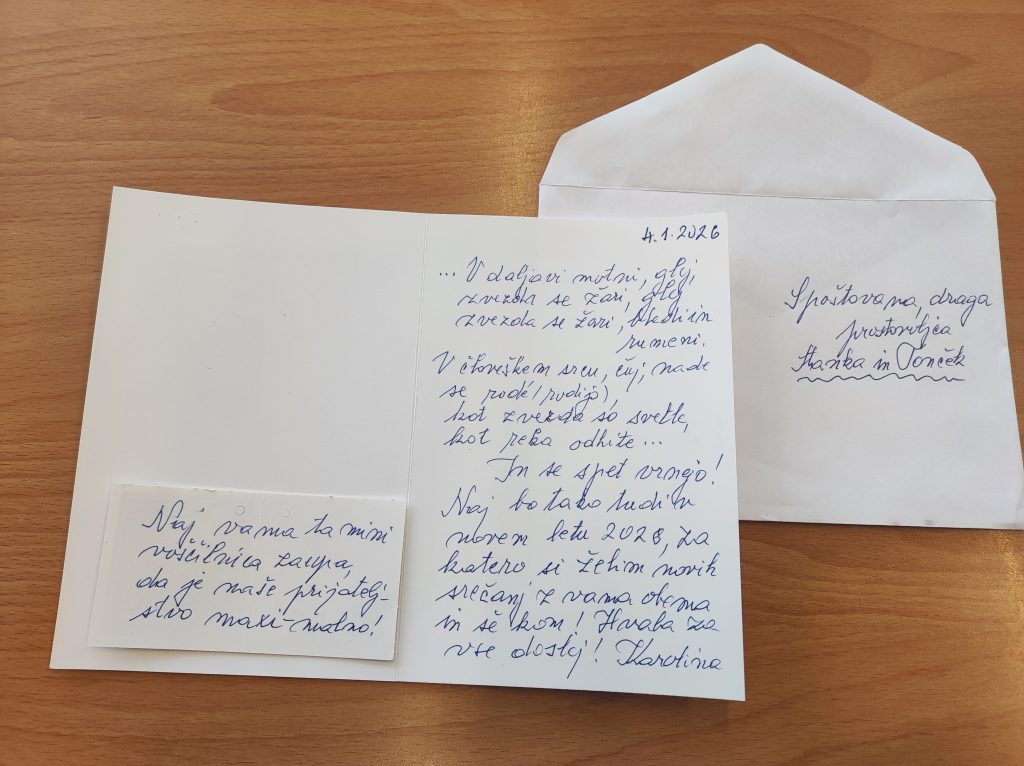 4.1.2026
... V daljavi motni, glej,
zvezda se žari, glej
zvezda se žari, bledi in
rumeni.
V človeškem srcu, čuj, nade
se rodé (rodijo),
kot zvezda so svetle,
kot reka odhite...
In se spet vrnejo!
Naj bo tako tudi v
novem letu 2026, za
katero si želim novih
srečanj z vama obema
in še kom! Hvala za
vse doslej! Karolina
Naj vama ta mini
voščilnica zaupa,
da je naše prijatelj-
stvo maxi-malno!
Spoštovana, draga
prostovoljca
Stanka in Tonček